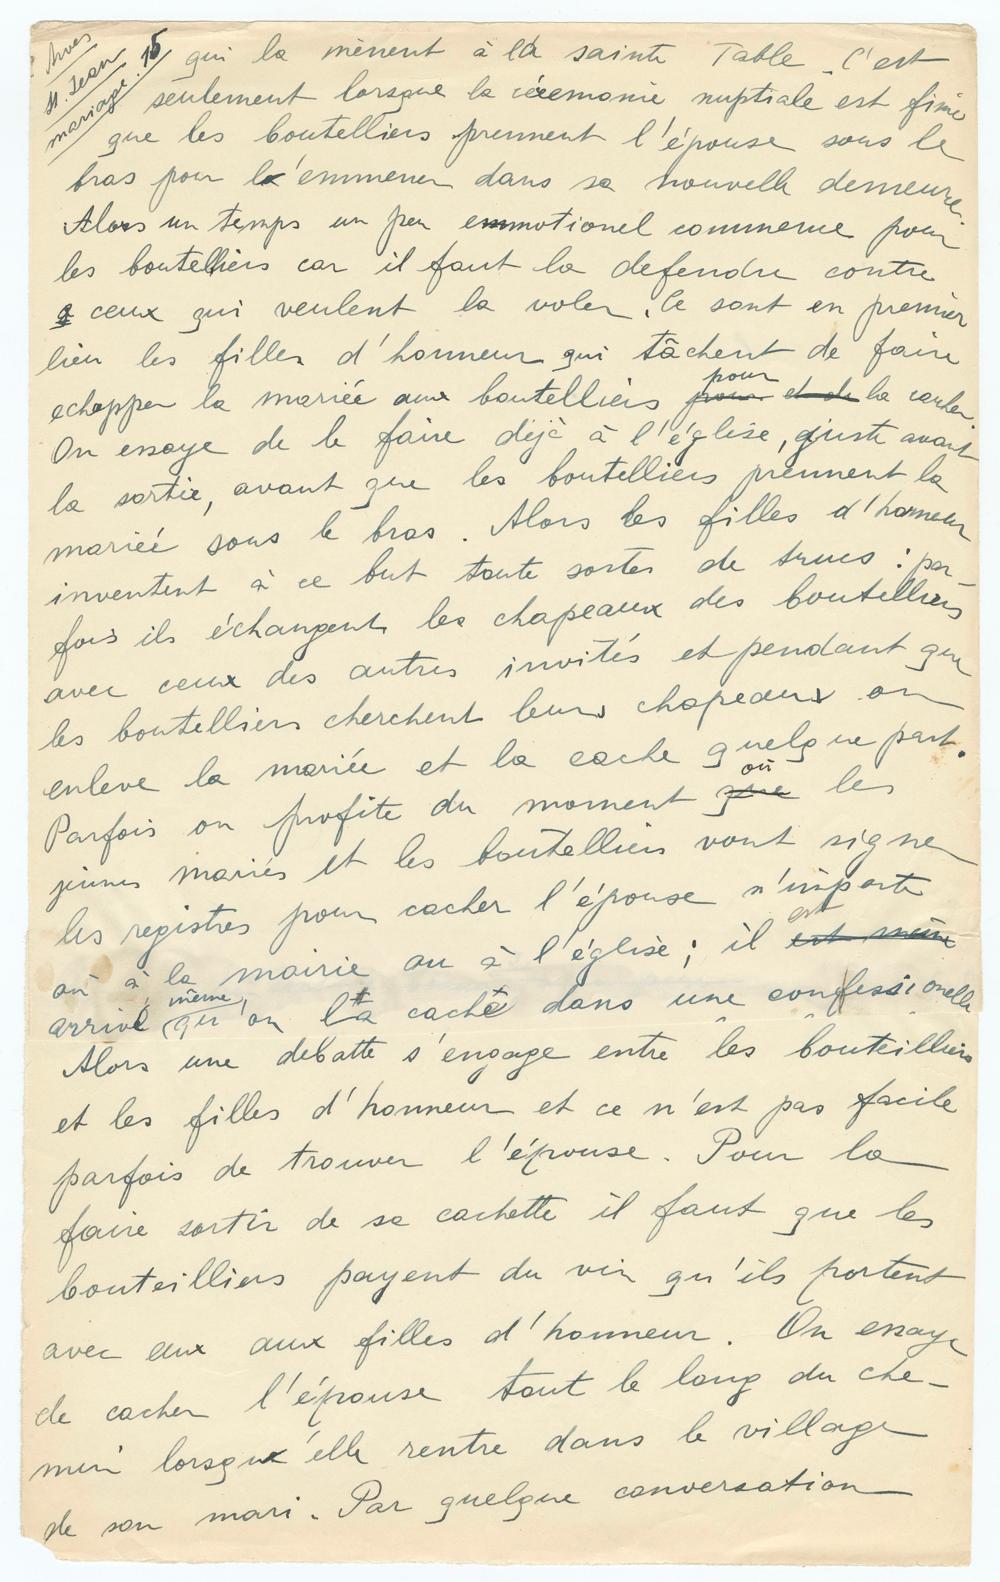 Arves
St. Jean
mariage. 15
qui la mènent à la sainte Table. C'est
seulement lorsque la céremonie nuptiale est finie
que les boutelliers prennent l'épouse sous le
bras pour l'emmener dans sa nouvelle demeure.
Alors un temps un peu emmotionel commence pour
les boutelliers car il faut la defendre contre
ceux qui veulent la voler. Ce sont en premier
lieu les filles d'honneur qui tâchent de faire
echapper la mariée aux boutelliers pour la cacher.
On essaye de le faire déjà à l'église, juste avant
la sortie, avant que les boutelliers prennent la
mariée sous le bras. Alors les filles d'honneur
inventent à ce but toute sortes de trucs : par-
fois ils échangent les chapeaux des boutelliers
avec ceux des autres invités et pendant que
les boutelliers cherchent leurs chapeaux on
enleve la mariée et la cache quelque part.
Parfois on profite du moment où les
jeunes mariés et les boutelliers vont signer
les registres pour cacher l'épouse n'importe
où à la mairie ou à l'église ; il est
arrivé même qu'on l'a caché dans une confessionelle
Alors une debatte s'engage entre les bouteilliers
et les filles d'honneur et ce n'est pas facile
parfois de trouver l'épouse. Pour la
faire sortir de sa cachette il faut que les
bouteilliers payent du vin qu'ils portent
avec eux aux filles d'honneur. On essaye
de cacher l'épouse tout le long du che-
min lorsqu'elle rentre dans le village
de son mari. Par quelque conversation